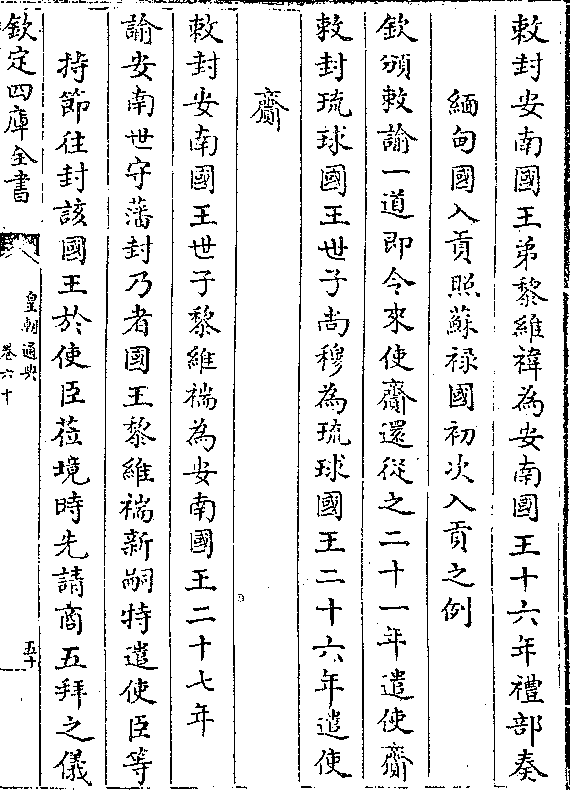 敕封安南國王弟黎維禕為安南國王十六年禮部奏
緬甸國入貢照蘇禄國初次入貢之例
欽頒敕諭一道即令來使齎還從之二十一年遣使齎
敕封琉球國王世子尚穆為琉球國王二十六年遣使
齎
敕封安南國王世子黎維褍為安南國王二十七年
諭安南世守藩封乃者國王黎維褍新嗣特遣使臣等
持節往封該國王於使臣蒞境時先請商五拜之儀
欽定四庫全書
皇朝通典
卷六十
五十